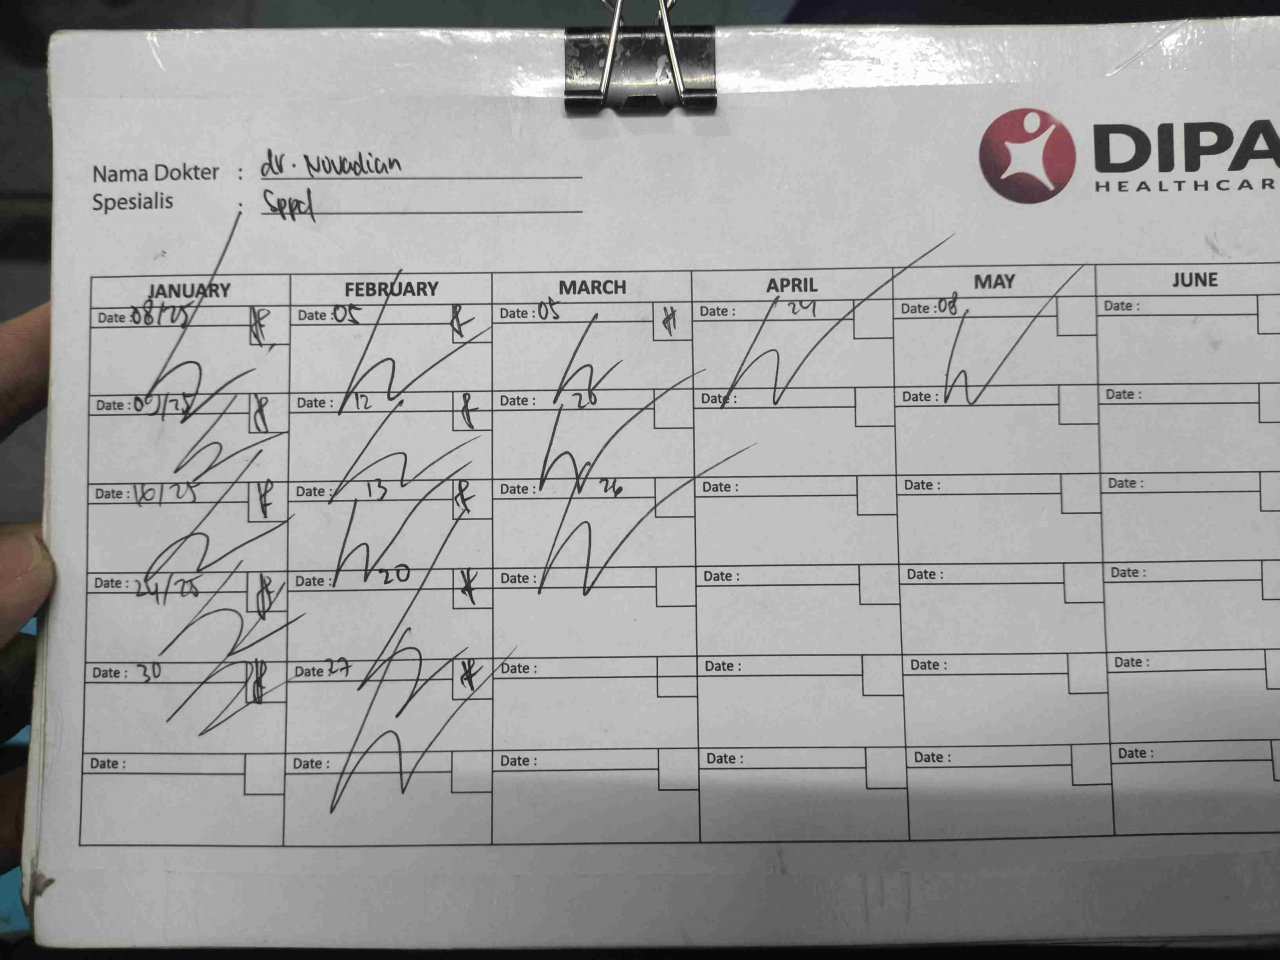 DIPA
HEALTHCAR
Nama Dokter : dr. Novadian
Spesialis : Sppd
JANUARY FEBRUARY MARCH APRIL MAY JUNE
Date : 08/25 Date : 05 Date : 05 Date : 24 Date : 08 Date :
Date : 09/25 Date : 12 Date : 20 Date : Date : Date :
Date : 16/25 Date : 13 Date : 26 Date : Date : Date :
Date : 24/25 Date : 20 Date : Date : Date : Date :
Date : 30 Date : 27 Date : Date : Date : Date :
Date : Date : Date : Date : Date : Date :